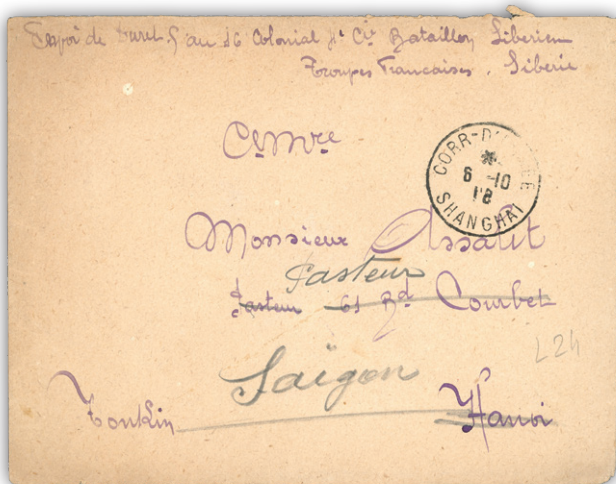 de Duret au 16 Colonial Bataillon Siberien
Troupes Francaises. Siberie
CORR-D'
6 -10
18
SHANGHAI
Monsieur Assalit
Pasteur
Pasteur 61 Bd Courbet
L24
Saïgon
Tonkin Hanoi